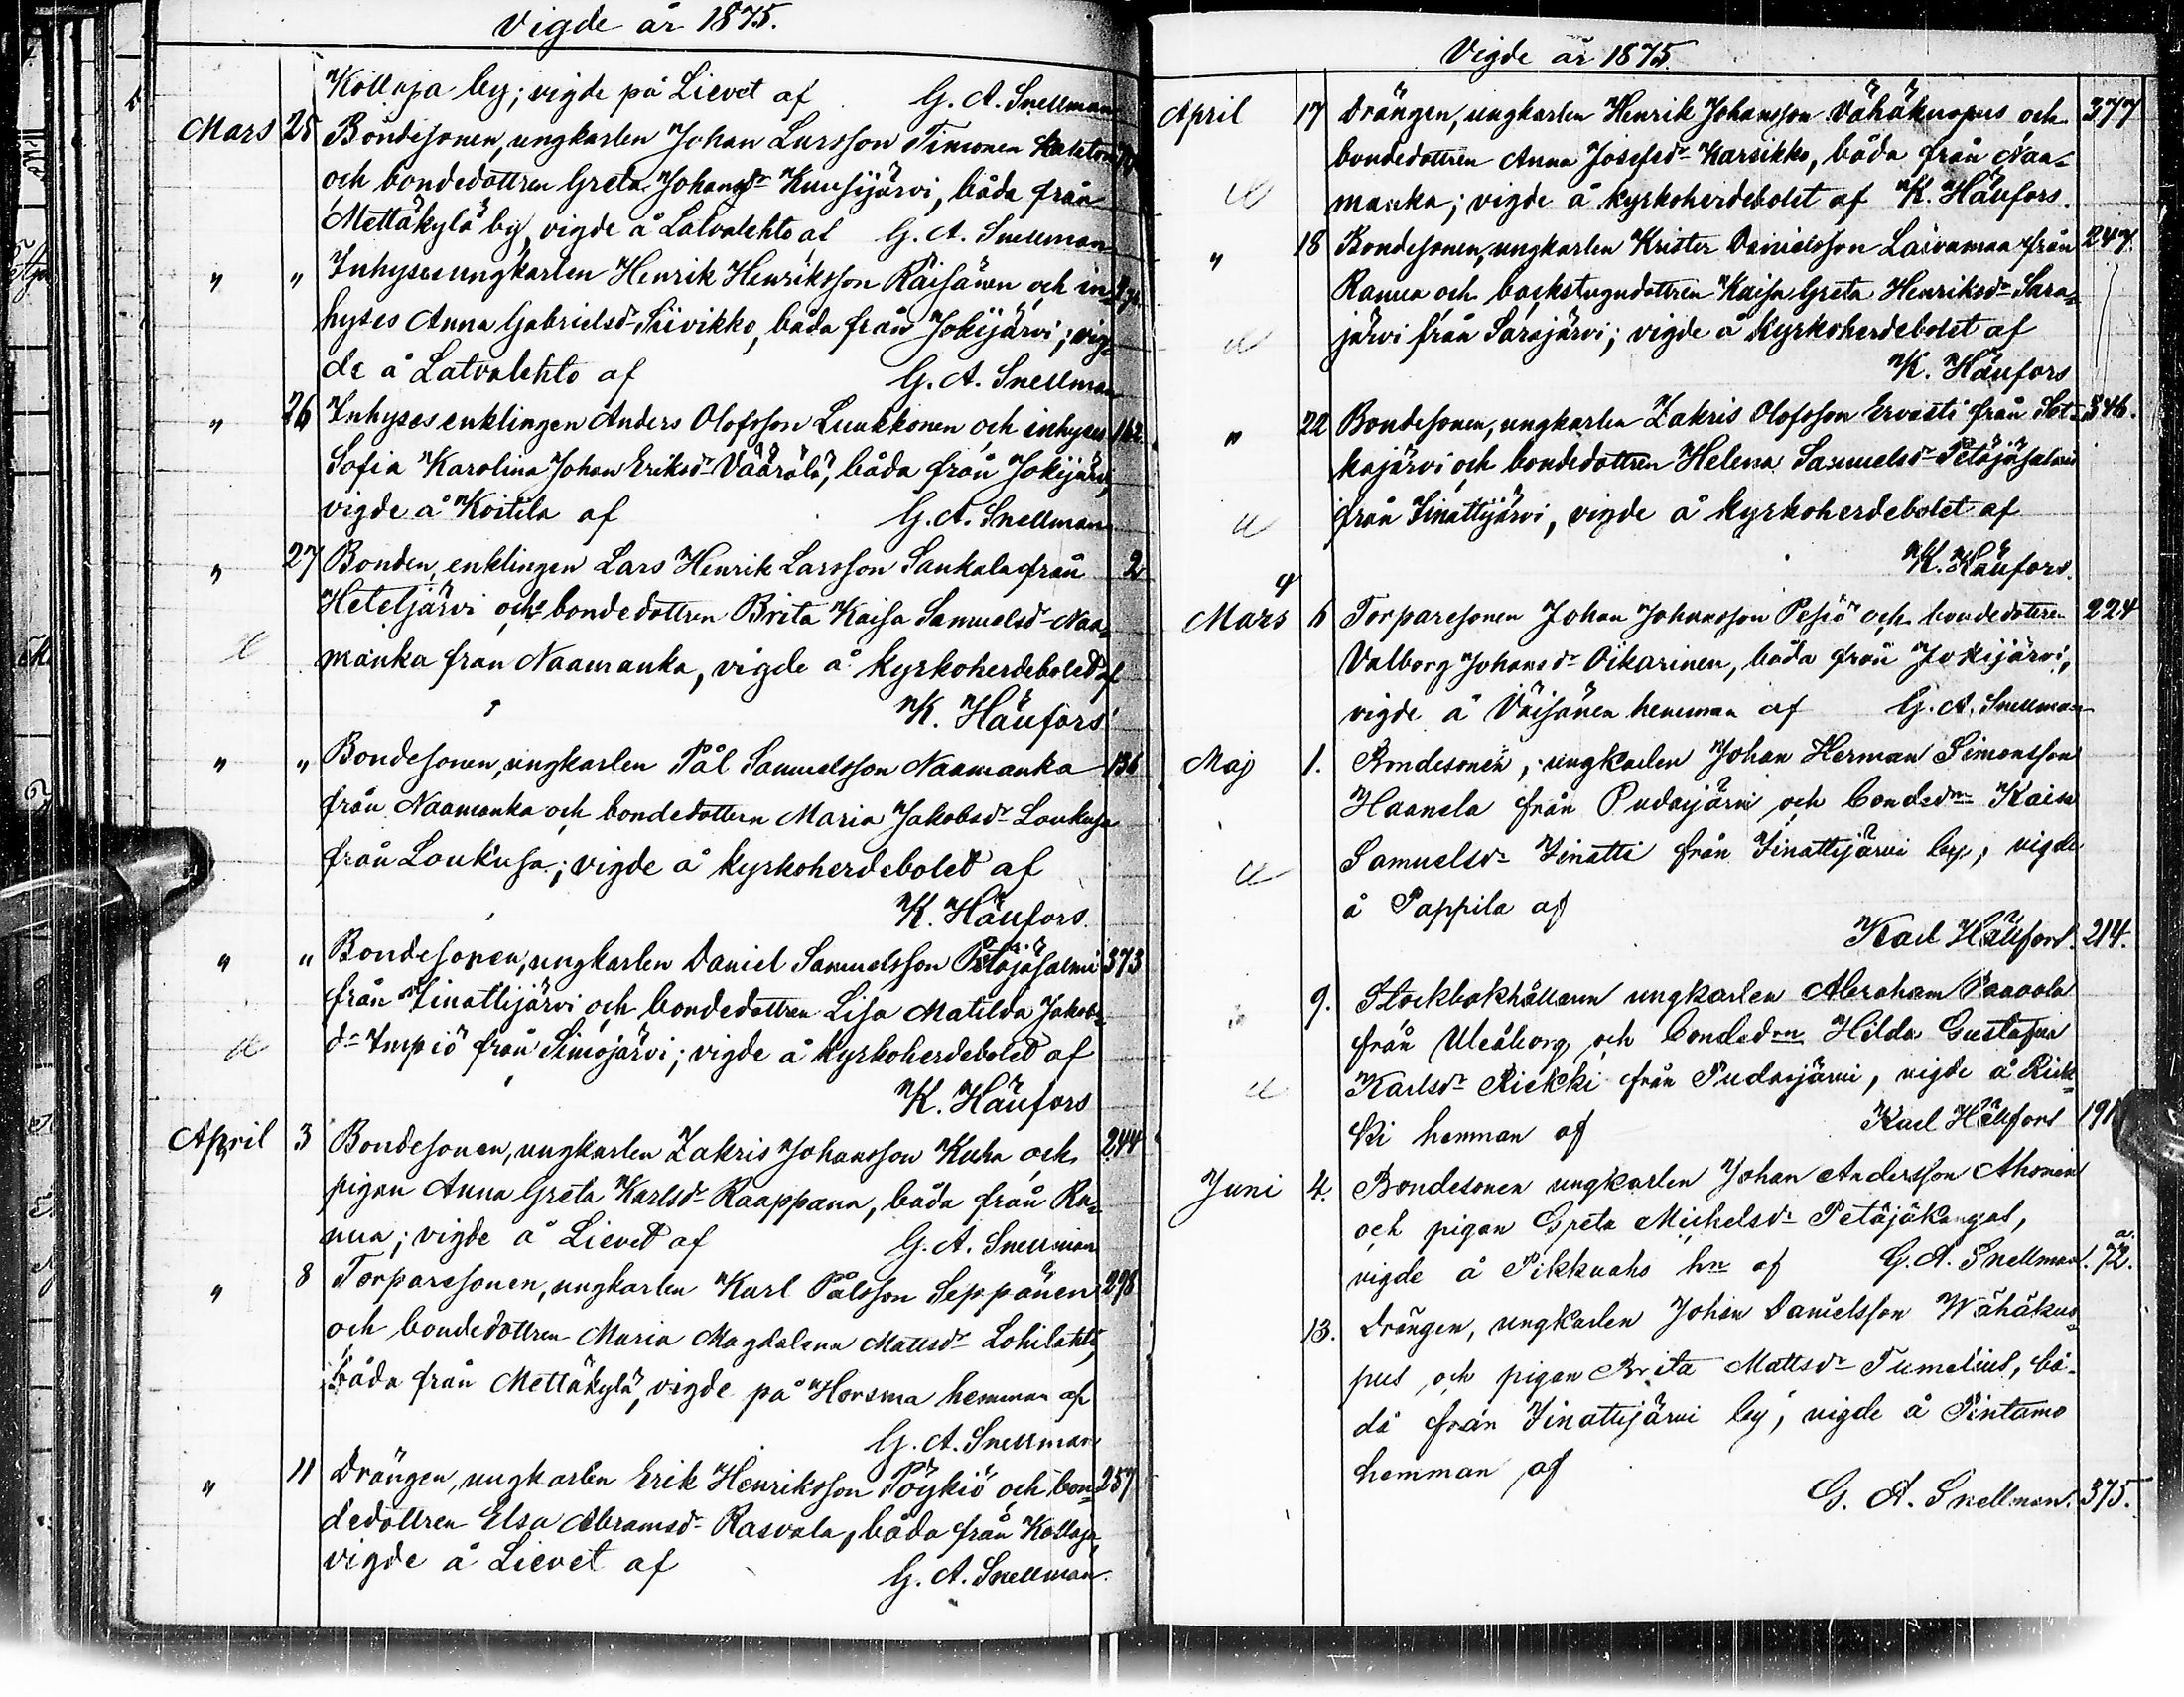 Vigde år 1875.
Kollaja by; vigde på Lievet af G. A. Snellman
Mars 25 Bondesonen, ungkarlen Johan Larsson Timonen
och bondedottren Greta Johansdr Kuusijärvi, båda från
Mettäkylä by, vigde å Latvalehto af G. A. Snellman
" " Inhysesungkarlen Henrik Henriksson Räisänen och in-
hyses Anna Gabrielsdr Siivikko, båda från Jokijärvi; vig-
de å Latvalehto af G. A. Snellman
" 26 Inhysesenklingen Anders Olofsson Luukkonen och inhyses 162
Sofia Karolina Johan Eriksdr Väärälä, båda från Jokijärvi,
vigde å Koitila af G. A. Snellman
" 27 Bonden, enklingen Lars Henrik Larsson Sankala från 2
Hetejärvi och bondedottren Brita Kaisa Samuelsdr Naa-
manka från Naamanka, vigde å kyrkoherdebolet af
K. Häufors
" " Bondesonen, ungkarlen Pål Samuelsson Naamanka 136
från Naamanka och bondedottren Maria Jakobsdr Loukusa
från Loukusa; vigde å kyrkoherdebolet af
K. Häufors.
" " Bondesonen, ungkarlen Daniel Samuelsson Petäjäsalmi 373
från Jinattijärvi och bondedottren Lisa Matilda Jakobs-
dr Impiö från Simojärvi; vigde å kyrkoherdebolet af
K. Häufors
April 3 Bondesonen, ungkarlen Zakris Johansson Kuha och 244
pigan Anna Greta Karlsdr Raappana, båda från Ra-
nua; vigde å Lievet af G. A. Snellman
" 8 Torparesonen, ungkarlen Karl Pålsson Seppänen 298
och bondedottren Maria Magdalena Mattsdr Lohilahti,
båda från Mettäkylä, vigde på Horsma hemman af
G. A. Snellman
" 11 Drängen, ungkarlen Erik Henriksson Pöykiö och bon- 257
dedottren Elsa Abramsdr Rasvala, båda från Kollaja,
vigde å Lievet af G. A. Snellman.
Vigde år 1875.
April 17 Drängen, ungkarlen Henrik Johansson Vähäkuopus och 377
bondedottren Anna Josefsdr Karsikko, båda från Naa-
manka; vigde å kyrkoherdebolet af K. Häufors.
" 18 Bondesonen, ungkarlen Krister Danielsson Laivamaa från 247.
Ranua och backstugudottren Kaisa Greta Henriksdr Sara-
järvi från Sarajärvi; vigde å kyrkoherdebolet af
K. Häufors
" 22 Bondesonen, ungkarlen Zakris Olofsson Ervasti från Sot- 346.
kajärvi och bondedottren Helena Samuelsdr Petäjäsalmi
från Jinattijärvi, vigde å kyrkoherdebolet af
K. Häufors.
Mars 6 Torparesonen Johan Johansson Pesiö och bondedottren 224
Valborg Johansdr Oikarinen, båda från Jokijärvi,
vigde å Väisänen hemman af G. A. Snellman
Maj 1. Bondesonen, ungkarlen Johan Herman Simonsson
Haanela från Pudasjärvi och bondedrn Kaisa
Samuelsdr Jinatti från Jinattijärvi by, vigde
å Pappila af
Karl Häufors. 214.
9. Stockbokhållaren ungkarlen Abraham Paavola
från Uleåborg och bondedrn Hilda Gustafva
Karlsdr Riekki från Pudasjärvi, vigde å Riek-
ki hemman af Karl Häufors 191
Juni 4. Bondesonen ungkarlen Johan Andersson Ahonen
och pigan Greta Michelsdr Petäjäkangas,
vigde å Pikkuaho hn af G. A. Snellman. 72. a.
13. Drängen, ungkarlen Johan Danielsson Wähäkuo-
pus och pigan Brita Mattsdr Tumelius, bå-
da från Jinattijärvi by, vigde å Pintamo
hemman af
G. A. Snellman. 375.